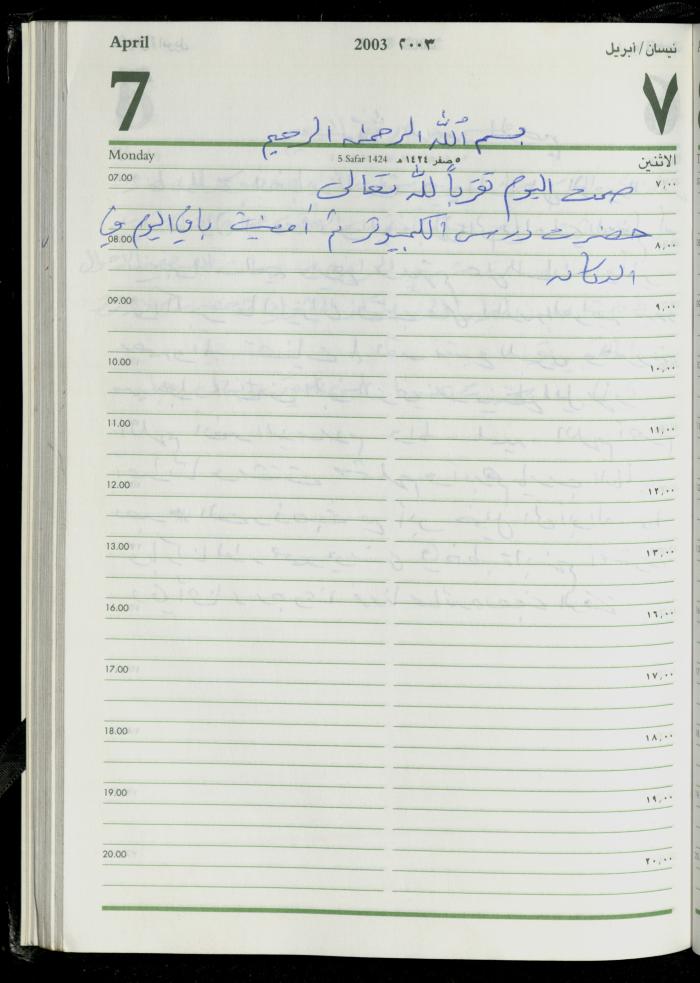 April 2003 ٢٠٠٣ نيسان/أبريل
7 ٧
بسم الله الرحمن الرحيم
Monday 5 Safar 1424 ٥ صفر ١٤٢٤ هـ الاثنين
07.00 ٧,٠٠
صمت اليوم تقرباً لله تعالى
حضرت درس الكمبيوتر ثم أمضيت باقي اليوم في
08.00 ٨,٠٠
الدكان
09.00 ٩,٠٠
10.00 ١٠,٠٠
11.00 ١١,٠٠
12.00 ١٢,٠٠
13.00 ١٣,٠٠
16.00 ١٦,٠٠
17.00 ١٧,٠٠
18.00 ١٨,٠٠
19.00 ١٩,٠٠
20.00 ٢٠,٠٠